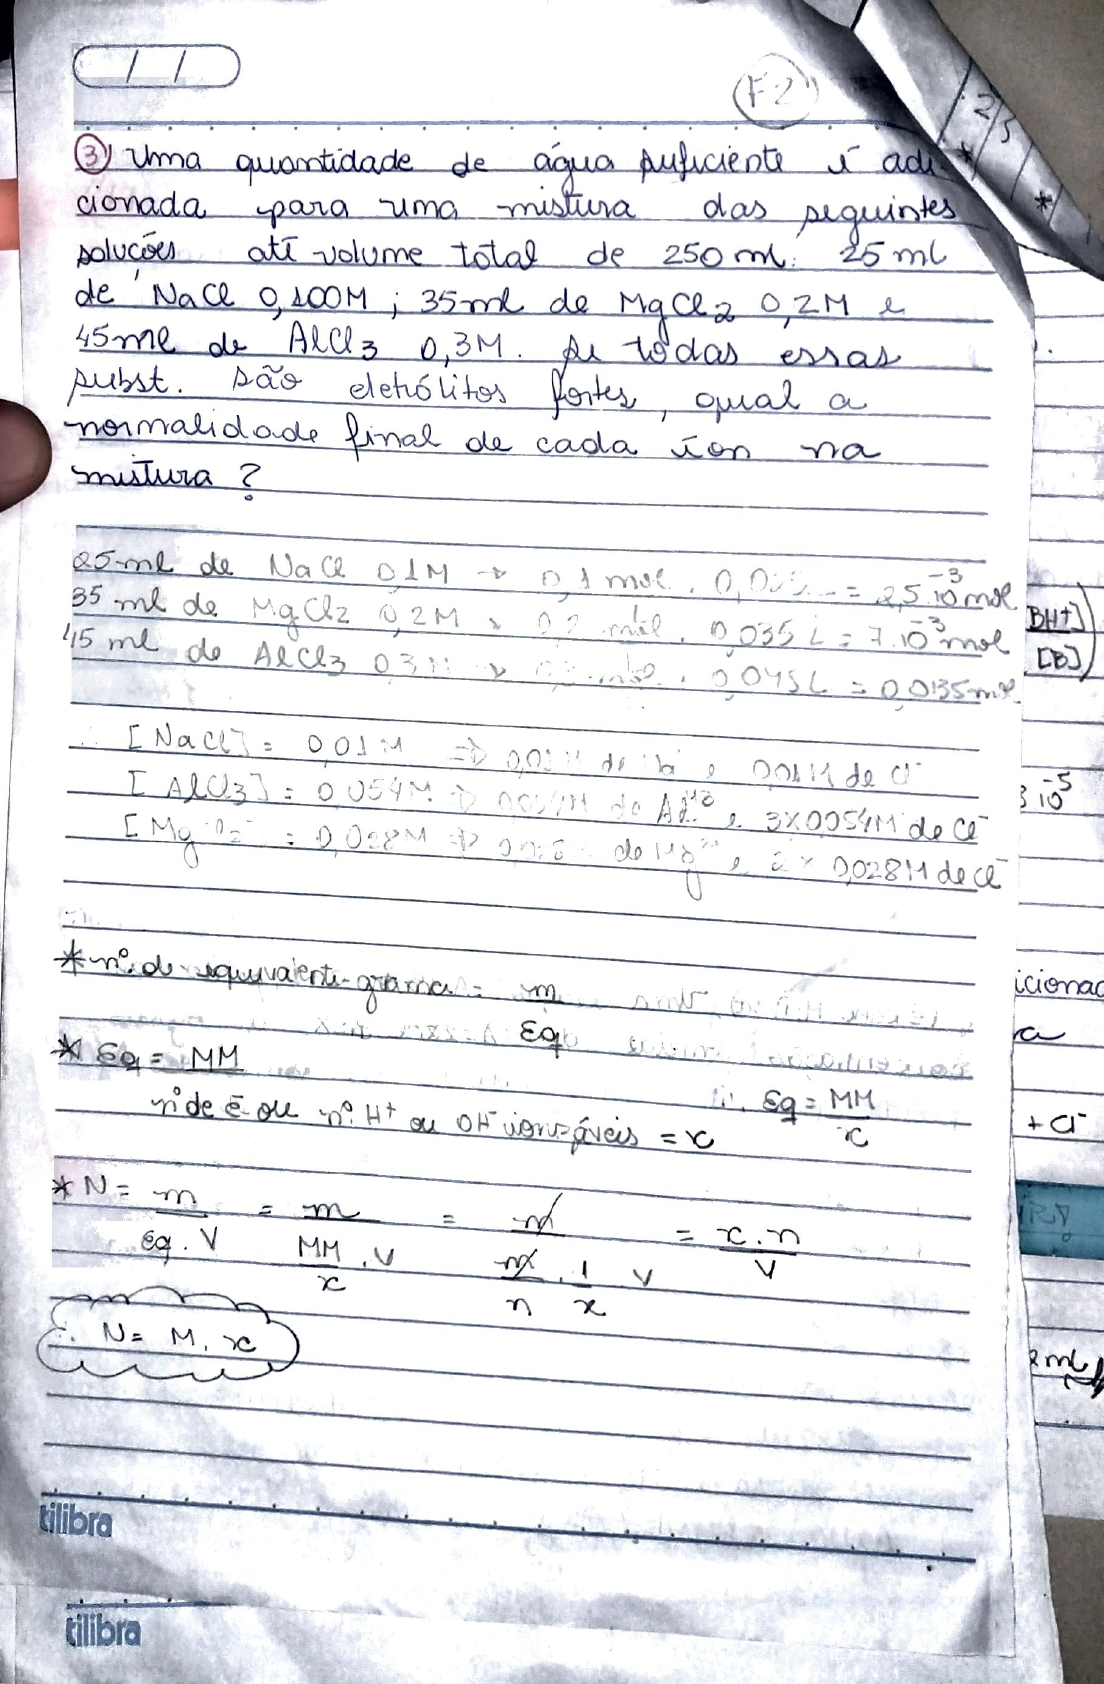 / /
F2
③ Uma quantidade de água suficiente é adi-
cionada para uma mistura das seguintes
soluções até volume total de 250 ml: 25 ml
de NaCl 0,100M; 35ml de MgCl2 0,2M e
45ml de AlCl3 0,3M. Se todas essas
subst. são eletrólitos fortes, qual a
normalidade final de cada íon na
mistura?
25 ml de NaCl 0,1M → 0,1 mol . 0,025 = 2,5.10⁻³ mol
35 ml de MgCl2 0,2M → 0,2 mol . 0,035 L = 7.10⁻³ mol
45 ml de AlCl3 0,3M → mol . 0,045L = 0,0135 mol
[NaCl] = 0,01M ⇒ 0,01M de Na e 0,01M de Cl⁻
[AlCl3] = 0,054M ⇒ 0,054M de Al⁺³ e 3x0,054M de Cl⁻
[Mg = 0,028M ⇒ de Mg e 2 x 0,028M de Cl⁻
* nº. de equivalente-grama = m
Eq
* Eq = MM
nº de ē ou nº. H⁺ ou OH⁻ ionizáveis = x
∴ Eq = MM
x
* N = m = m = m = x . n
Eq . V MM . V m . 1 V V
x n x
∴ N = M . x
tilibra
tilibra
2/5
*
*
BH+]
[B]
3 10⁻⁵
icionad
ra
+ Cl⁻
IR!
2 ml